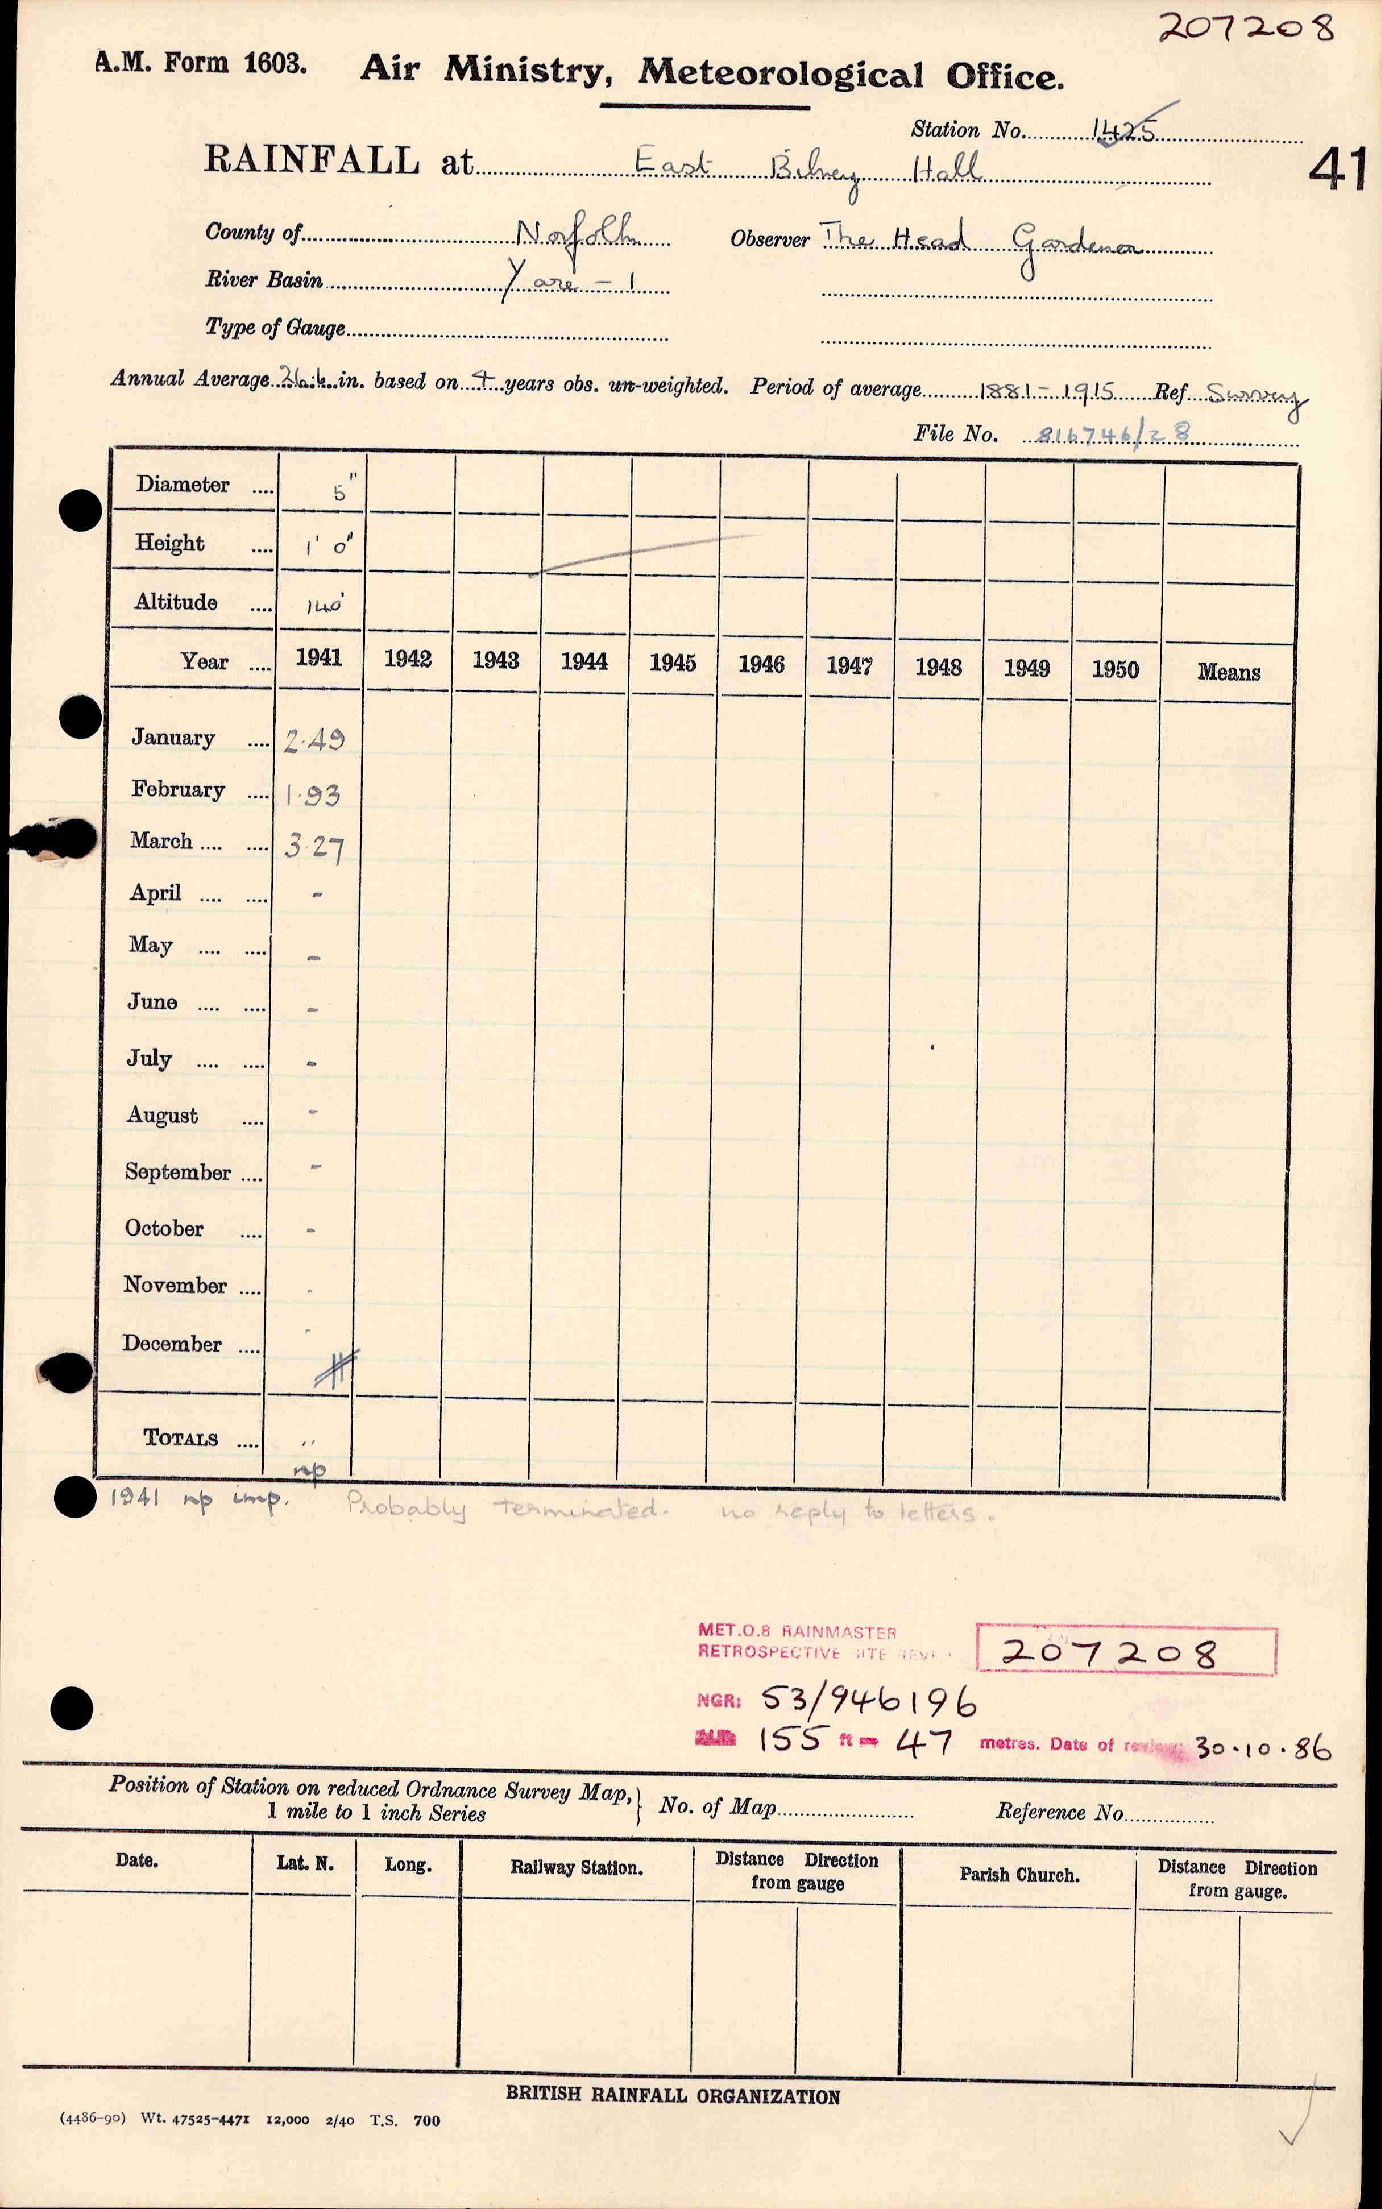 207208
A.M. Form 1603. Air Ministry, Meteorological Office.
Station No. 1425
RAINFALL at East Bilney Hall
41
County of Norfolk Observer The Head Gardener
River Basin Yare - 1
Type of Gauge
Annual Average 26.6 in. based on 4 years obs. un-weighted. Period of average 1881-1915 Ref. Survey
File No. 816746/28
Diameter .... 5"
Height .... 1' 0"
Altitude .... 140'
Year .... 1941 1942 1943 1944 1945 1946 1947 1948 1949 1950 Means
January .... 2.49
February .... 1.93
March .... .... 3.27
April .... .... -
May .... .... -
June .... .... -
July .... .... -
August .... -
September .... -
October .... -
November .... -
December .... -
TOTALS .... "
np
1941 np imp. Probably terminated. no reply to letters.
MET.O.8 RAINMASTER
RETROSPECTIVE SITE REVI
207208
NGR: 53/946196
155 ft = 47 metres. Date of review: 30.10.86
Position of Station on reduced Ordnance Survey Map, } No. of Map Reference No.
1 mile to 1 inch Series
Date. Lat. N. Long. Railway Station. Distance Direction from gauge Parish Church. Distance Direction from gauge.
BRITISH RAINFALL ORGANIZATION
(4486-90) Wt. 47525-4471 12,000 2/40 T.S. 700